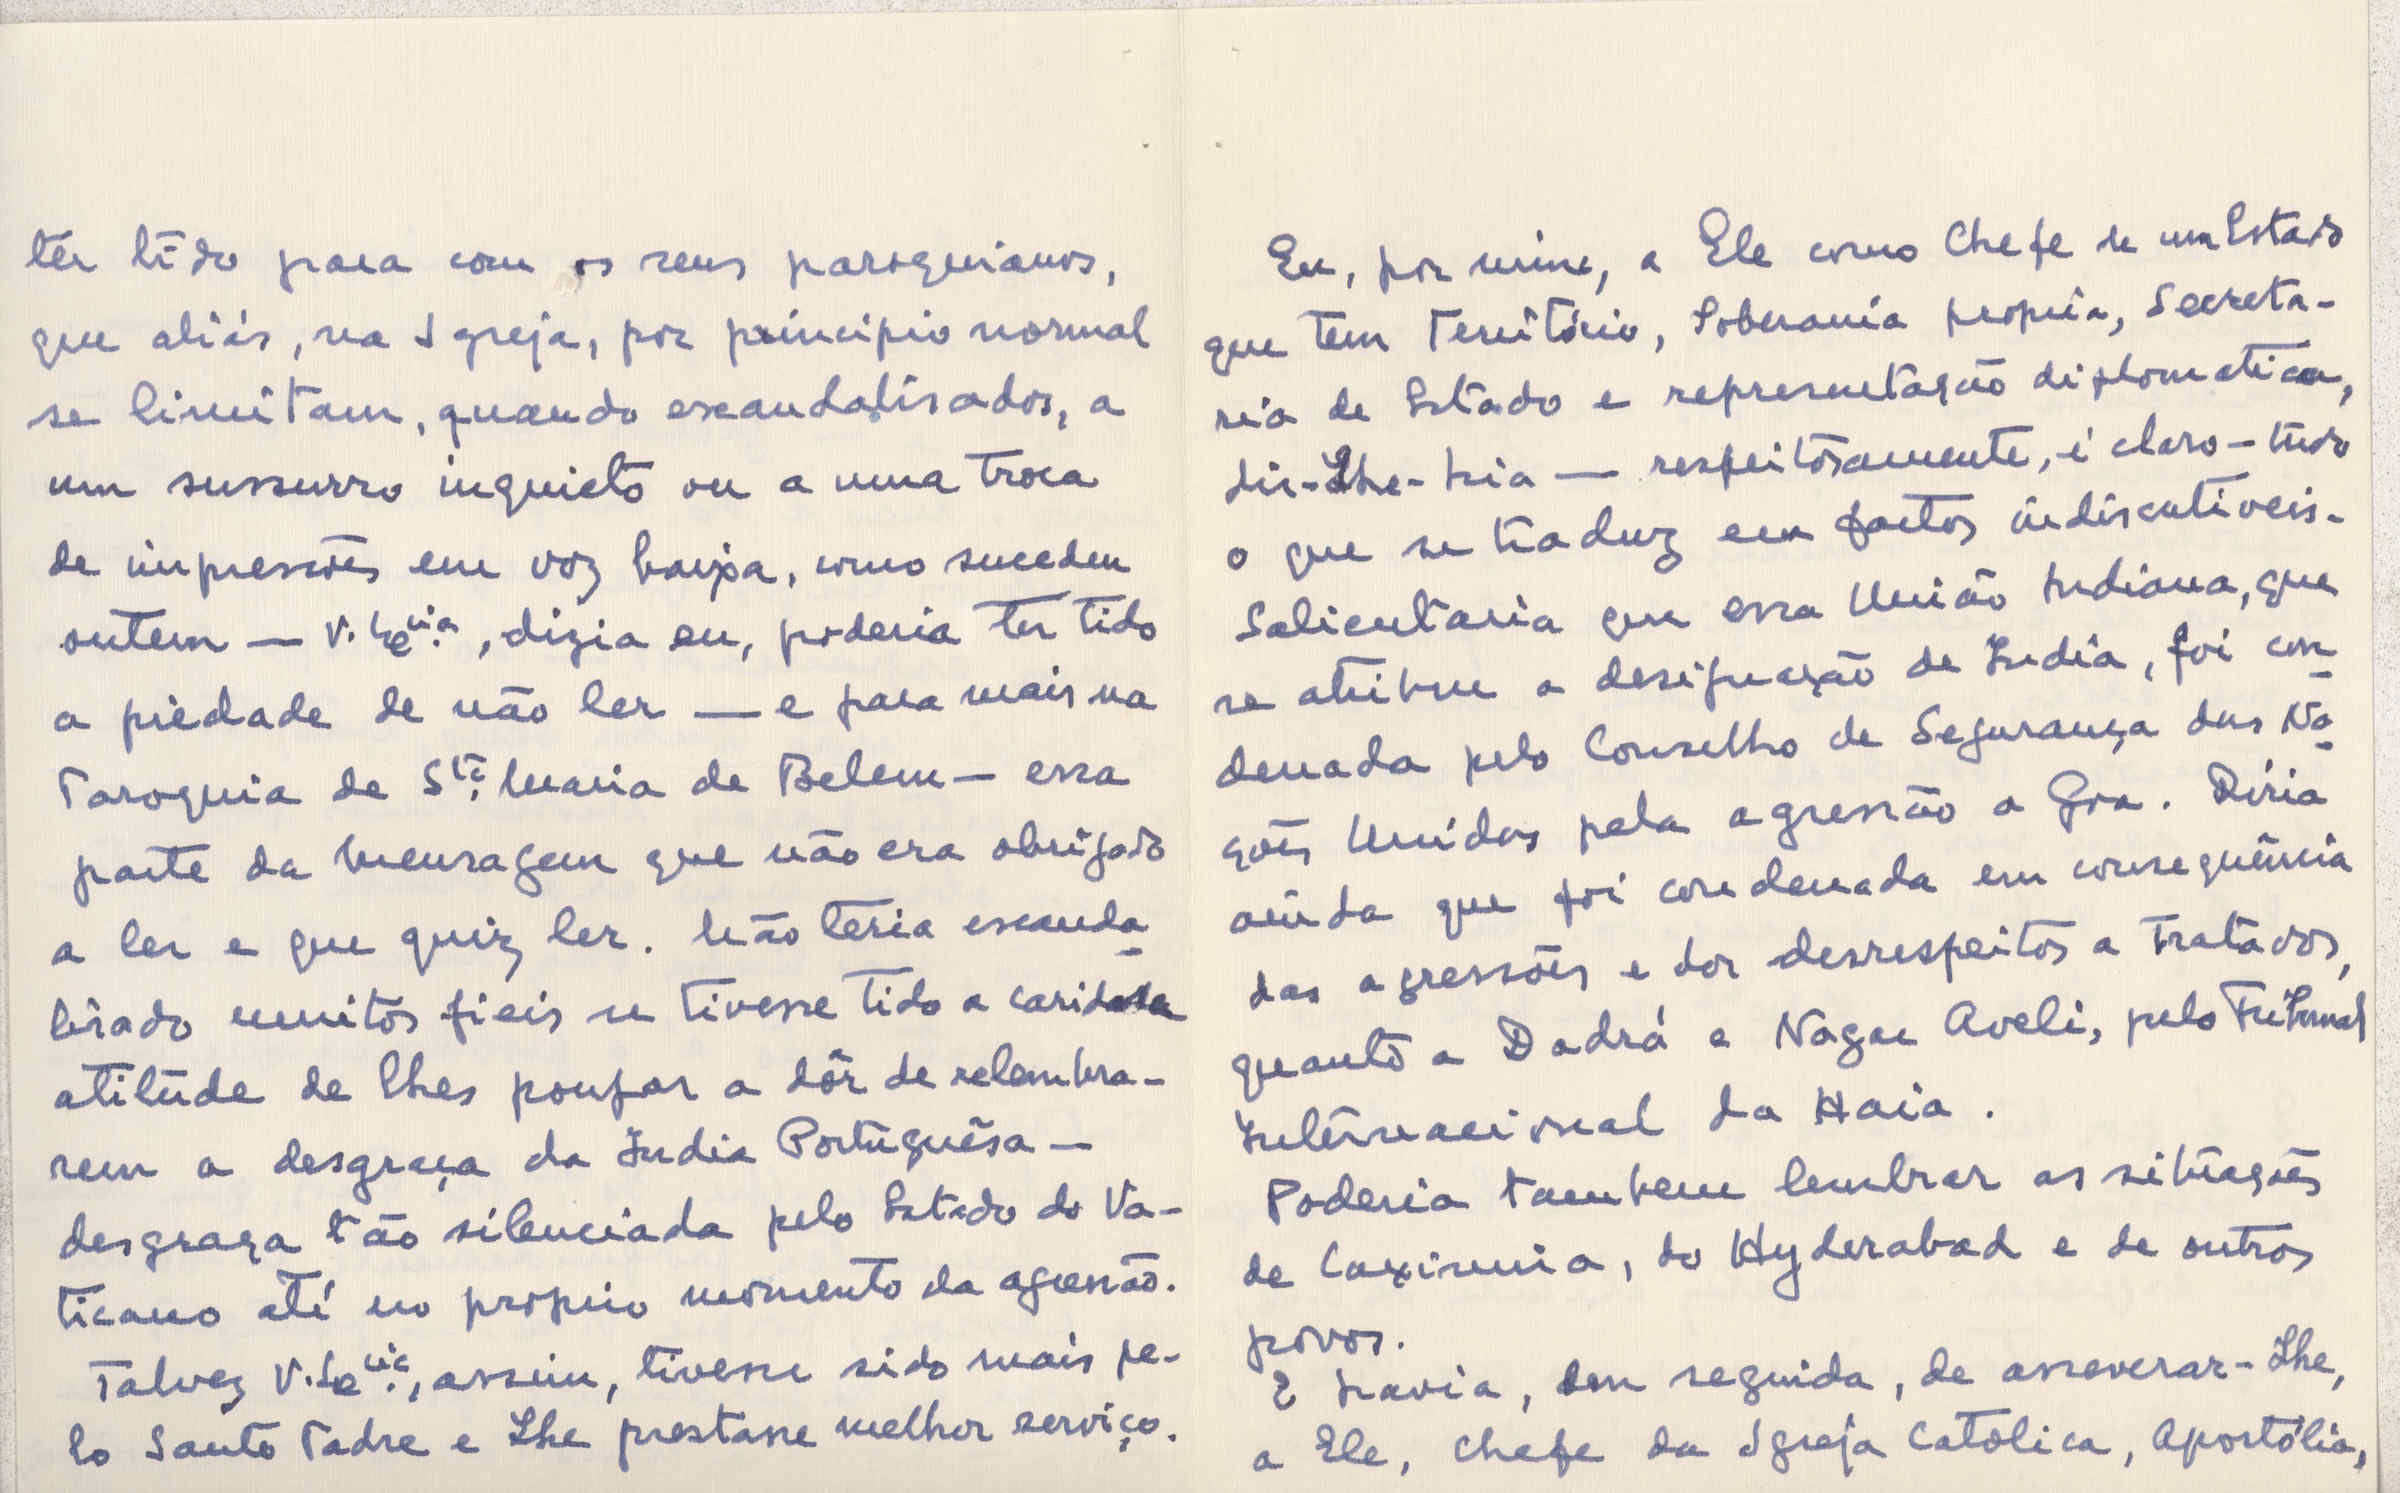 ter tido para com os seus paroquianos,
que aliás, na Igreja, por principio normal
se limitam, quando escandalisados, a
um sussurro inquieto ou a uma troca
de impressões em voz baixa, como sucedeu
ontem — V. Exᶜⁱᵃ., dizia eu, poderia ter tido
a piedade de não ler — e para mais na
Paroquia de Sᵗᵃ. Maria de Belem — essa
parte da Mensagem que não era obrigado
a ler e que quiz ler. Não teria escanda-
lisado muitos fieis se tivesse tido a caridosa
atitude de lhes poupar a dôr de relembra-
rem a desgraça da India Portuguêsa —
desgraça tão silenciada pelo Estado do Va-
ticano até no proprio momento da agressão.
Talvez V. Exᶜⁱᵃ., assim, tivesse sido mais pe-
lo Santo Padre e Lhe prestasse melhor serviço.
Eu, por mim, a Ele como Chefe de um Estado
que tem Território, Soberania propria, Secreta-
ria de Estado e representação diplomatica,
dir-Lhe-hia — respeitosamente, é claro — tudo
o que se traduz em factos indiscutiveis.
Salientaria que essa União Indiana, que
se atribue a designação de India, foi con-
denada pelo Conselho de Segurança das Na-
ções Unidas pela agressão a Goa. Diria
ainda que foi condenada em consequência
das agressões e dos desrespeitos a Tratados,
quanto a Dadrá e Nagar Aveli, pelo Tribunal
Internacional da Haia.
Poderia tambem lembrar as situações
de Caximia, do Hyderabad e de outros
povos.
E havia, em seguida, de asseverar-Lhe,
a Ele, Chefe da Igreja Catolica, Apostólia,